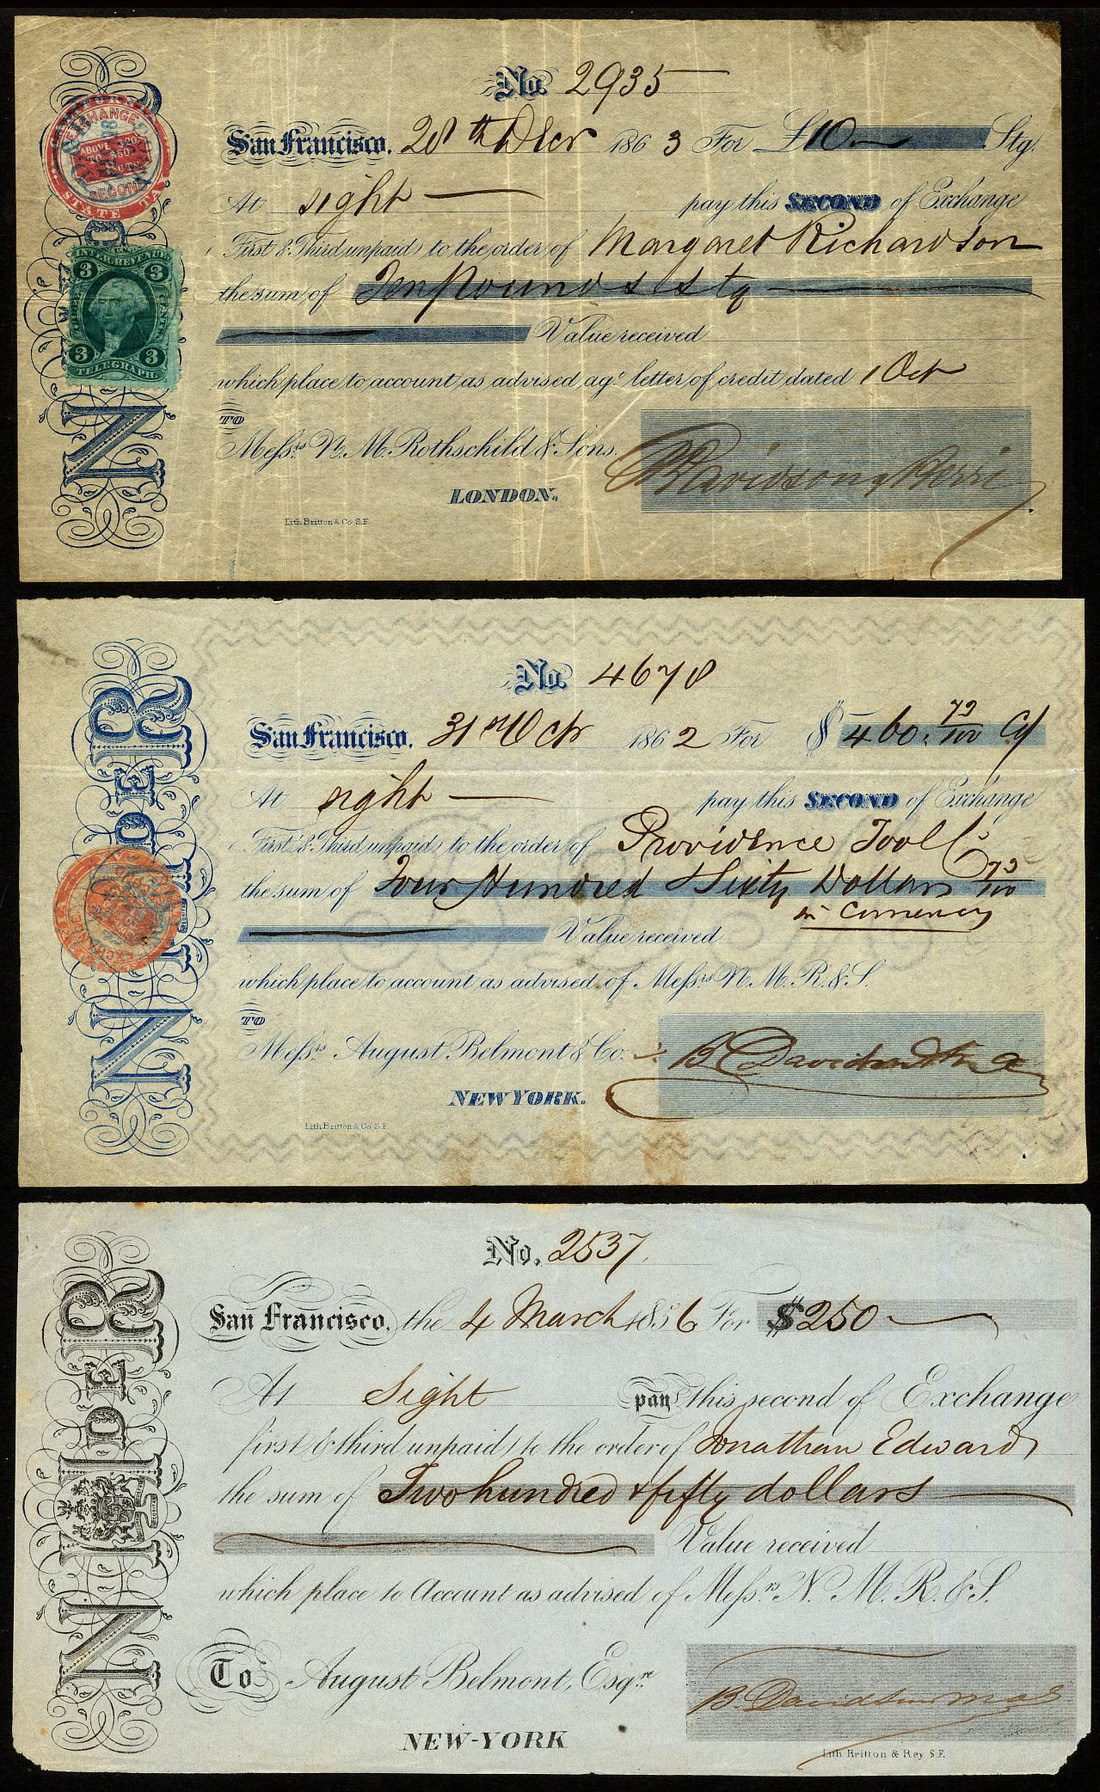 No. 2935
San Francisco, 20th Decr 1863 For £10 Stg.
At sight pay this SECOND of Exchange
(First & Third unpaid) to the order of Margaret Richardson
the sum of Ten Pounds Stg
Value received
which place to account as advised agt letter of credit dated 1 Oct
TO
Messrs N. M. Rothschild & Sons.
LONDON.
B Davidson & Berri
Lith. Britton & Co S.F.
EXCHANGE
ABOVE
SECOND
STATE TAX
INTER. REVENUE
3 3
THREE CENTS
3 3
TELEGRAPH.
No. 4678
San Francisco, 31st Octr 1862 For $460.73/100 Cy
At sight pay this SECOND of Exchange
(First & Third unpaid) to the order of Providence Tool Co
the sum of Four Hundred & Sixty Dollars 73/100
in currency
Value received
which place to account as advised of Messrs N. M. R. & S.
TO
Messrs August Belmont & Co.
NEW YORK.
B Davidson
Lith. Britton & Co S.F.
NMdeR
No. 2537
San Francisco, the 4 March 1856 For $250
At Sight pay this second of Exchange
first & third unpaid) to the order of Jonathan Edwards
the sum of Two hundred & fifty dollars
Value received
which place to Account as advised of Messrs N. M. R. & S.
To August Belmont, Esqre.
NEW-YORK
B. Davidson
Lith Britton & Rey S.F.